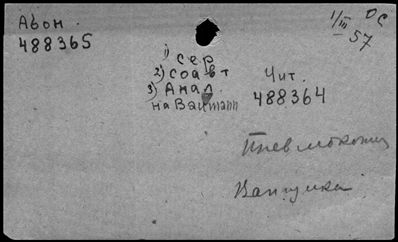 Абон.
488365
1/III – 57
ОС
1) Сер
2) Соавт
3) Анал.
на Baumann
Чит.
488364
Пневмокониоз